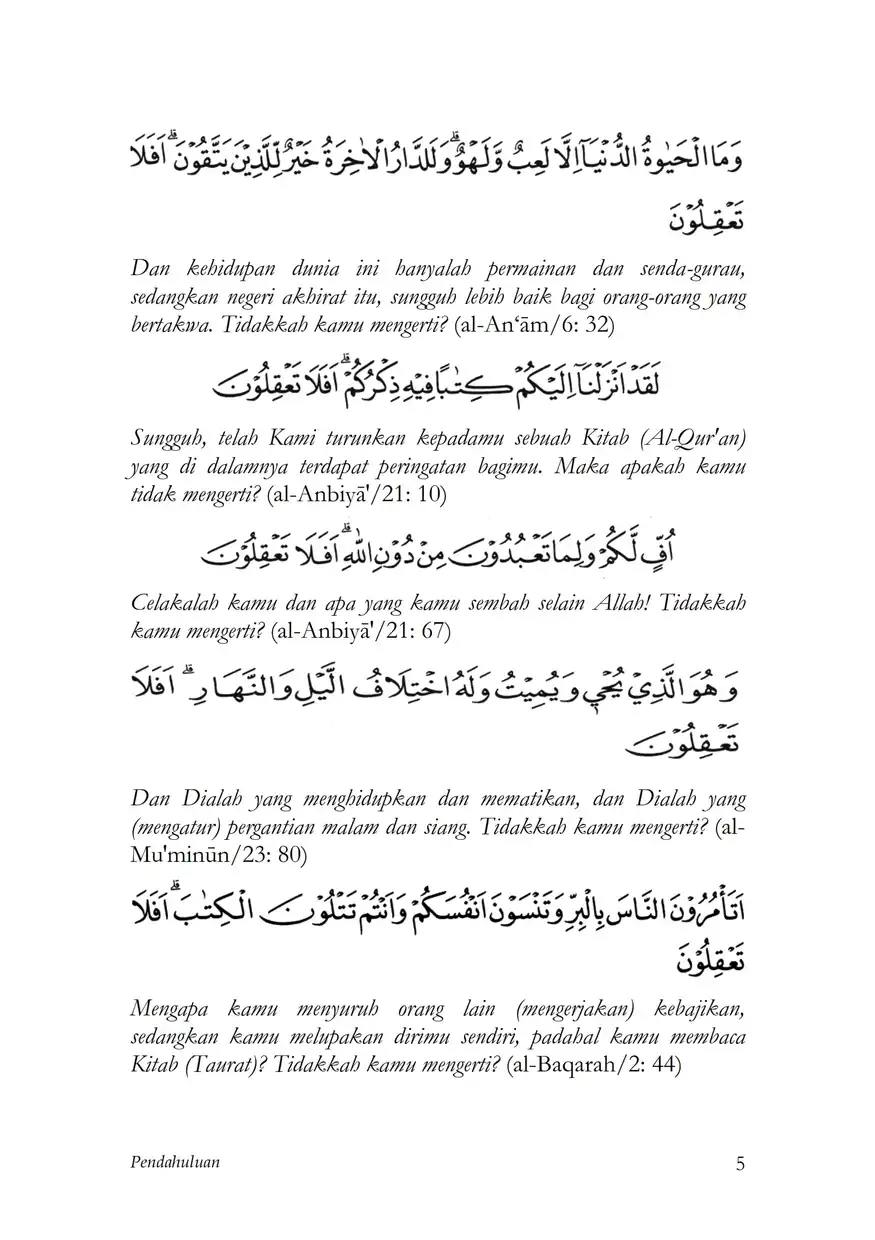 وَمَا الْحَيٰوةُ الدُّنْيَآ اِلَّا لَعِبٌ وَّلَهْوٌ ۗوَلَلدَّارُ الْاٰخِرَةُ خَيْرٌ لِّلَّذِيْنَ يَتَّقُوْنَ ۗ اَفَلَا
تَعْقِلُوْنَ
Dan kehidupan dunia ini hanyalah permainan dan senda-gurau,
sedangkan negeri akhirat itu, sungguh lebih baik bagi orang-orang yang
bertakwa. Tidakkah kamu mengerti? (al-An‘ām/6: 32)
لَقَدْ اَنْزَلْنَآ اِلَيْكُمْ كِتٰبًا فِيْهِ ذِكْرُكُمْ ۗ اَفَلَا تَعْقِلُوْنَ
Sungguh, telah Kami turunkan kepadamu sebuah Kitab (Al-Qur'an)
yang di dalamnya terdapat peringatan bagimu. Maka apakah kamu
tidak mengerti? (al-Anbiyā'/21: 10)
اُفٍّ لَّكُمْ وَلِمَا تَعْبُدُوْنَ مِنْ دُوْنِ اللّٰهِ ۗ اَفَلَا تَعْقِلُوْنَ
Celakalah kamu dan apa yang kamu sembah selain Allah! Tidakkah
kamu mengerti? (al-Anbiyā'/21: 67)
وَهُوَ الَّذِيْ يُحْيٖ وَيُمِيْتُ وَلَهُ اخْتِلَافُ الَّيْلِ وَالنَّهَارِ ۗ اَفَلَا
تَعْقِلُوْنَ
Dan Dialah yang menghidupkan dan mematikan, dan Dialah yang
(mengatur) pergantian malam dan siang. Tidakkah kamu mengerti? (al-
Mu'minūn/23: 80)
اَتَأْمُرُوْنَ النَّاسَ بِالْبِرِّ وَتَنْسَوْنَ اَنْفُسَكُمْ وَاَنْتُمْ تَتْلُوْنَ الْكِتٰبَ ۗ اَفَلَا
تَعْقِلُوْنَ
Mengapa kamu menyuruh orang lain (mengerjakan) kebajikan,
sedangkan kamu melupakan dirimu sendiri, padahal kamu membaca
Kitab (Taurat)? Tidakkah kamu mengerti? (al-Baqarah/2: 44)
Pendahuluan 5